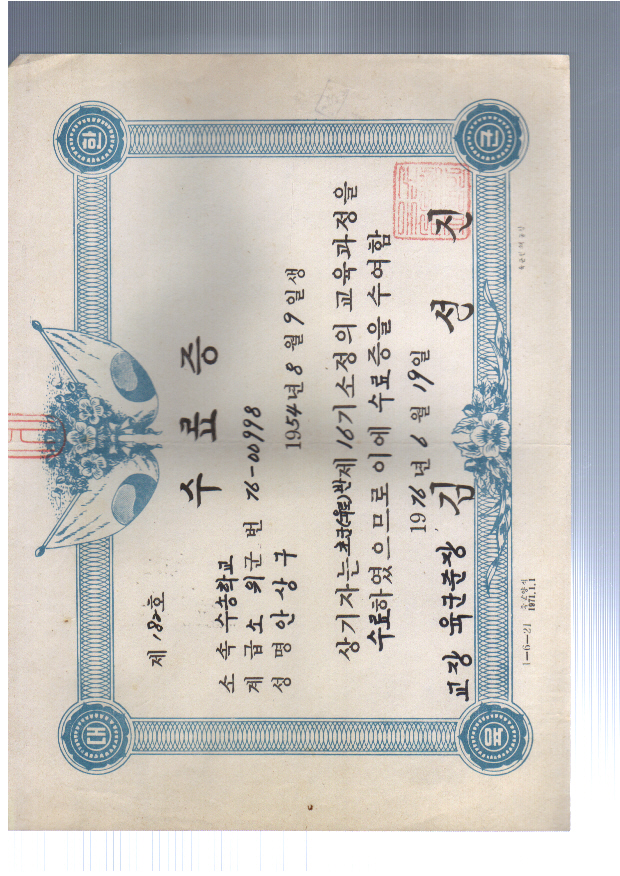 대 한
제 182호
수료증
소속 수송학교
계급 소위 군번 76-00998
성명 안상구
1954년 8월 9일생
상기자는 초군(수료)반 제 16기 소정의 교육과정을
수료하였으므로 이에 수료증을 수여함
1976년 6월 19일
교장 육군준장 김선진
육 군
1-6-21
1971.1.1